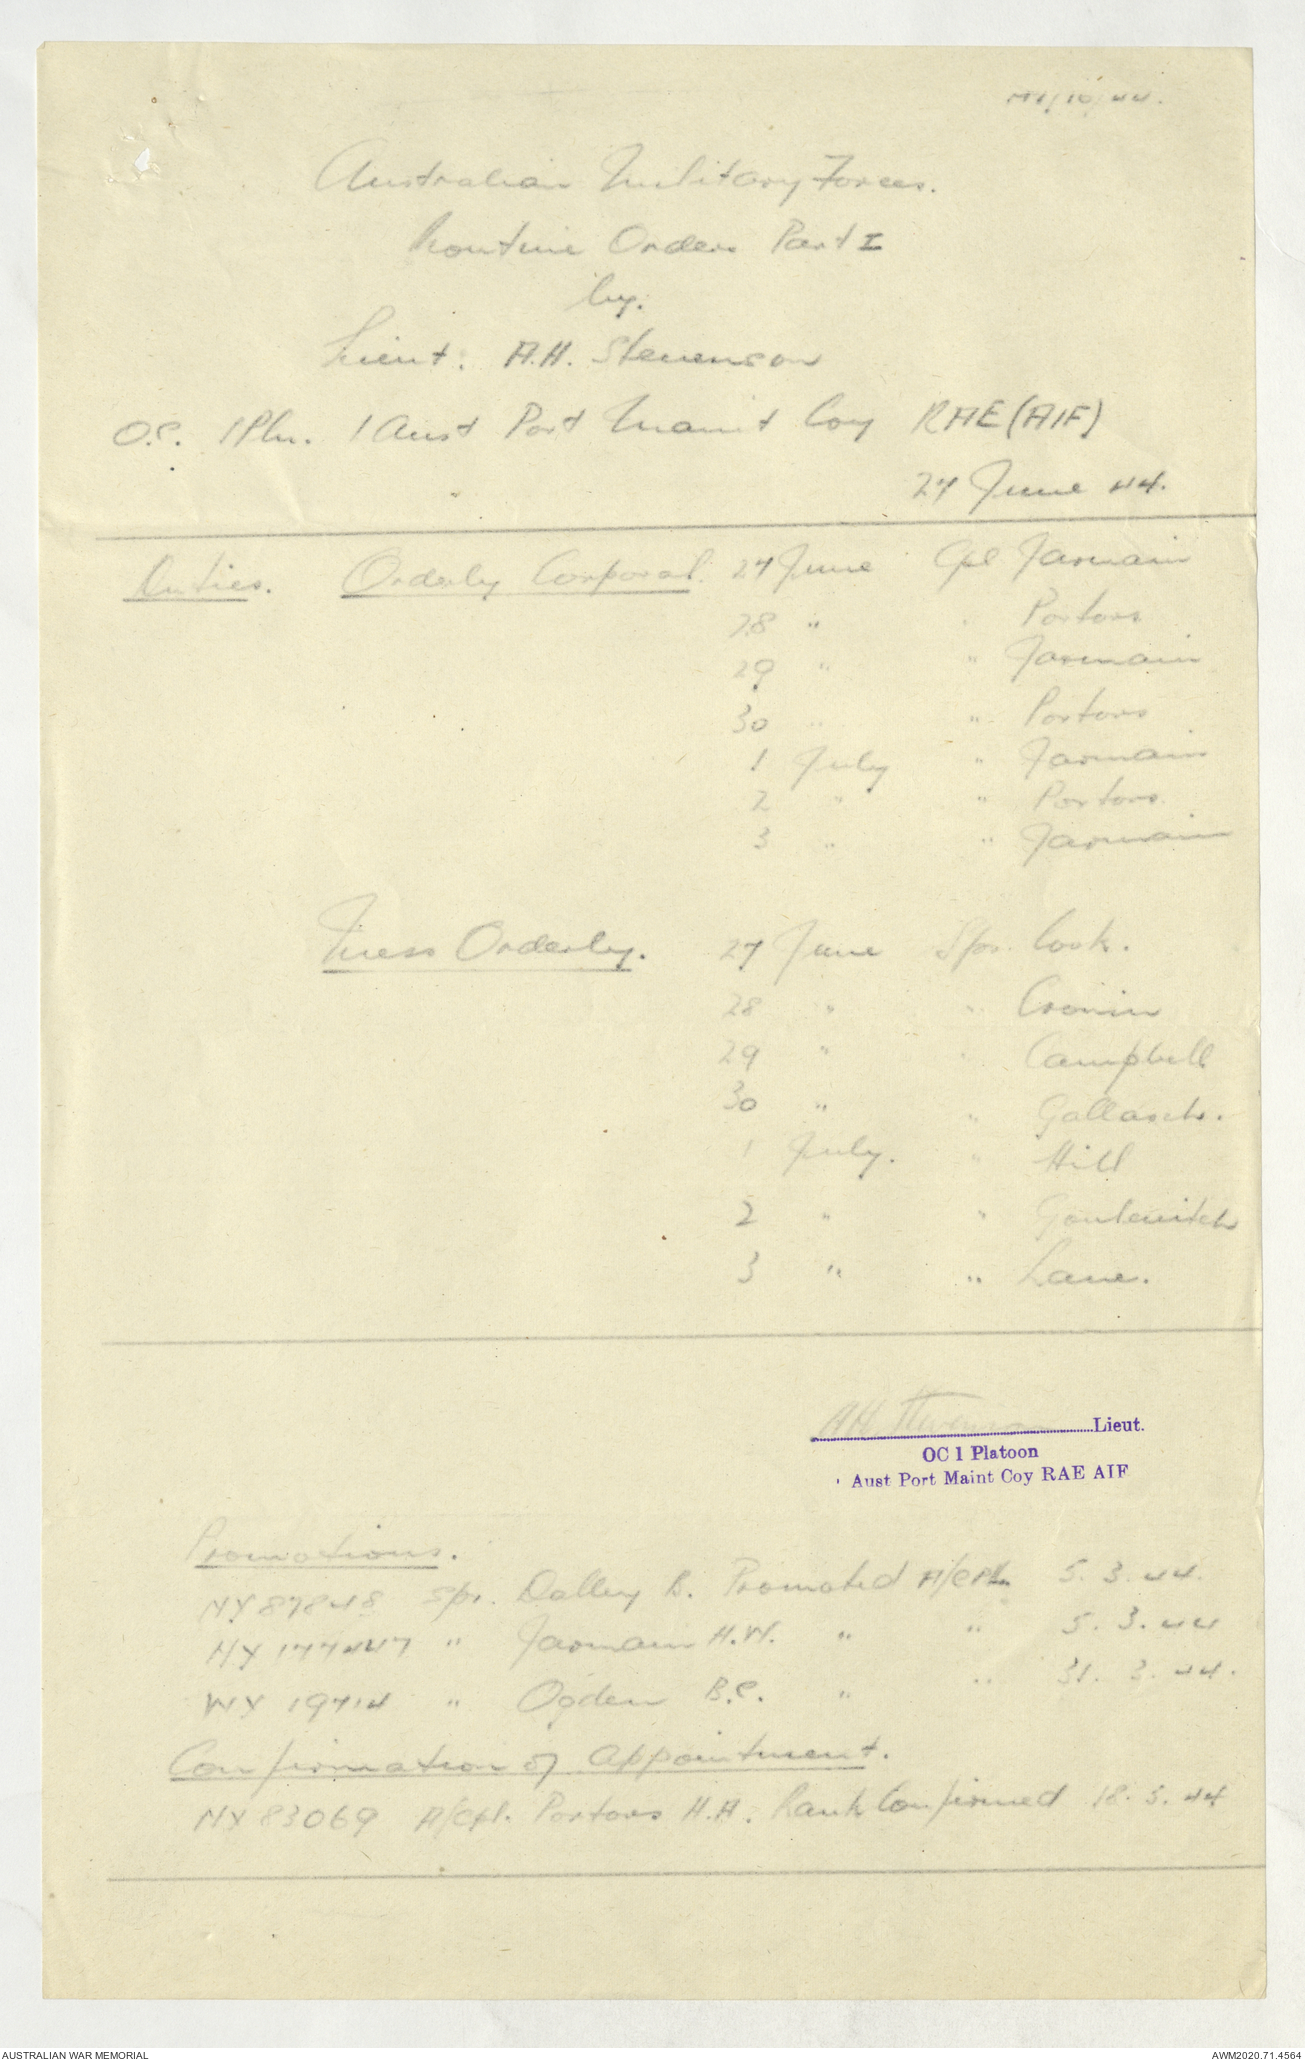 Australian Military Forces.
Routine Orders Part I
by.
Lieut. A.H. Stevenson
O.C. 1 Pln. 1 Aust Port Maint Coy RAE (AIF)
27 June 44.
Duties. Orderly Corporal. 27 June Cpl Jarmain
28 " " Portors
29 " " Jarmain
30 " " Portors
1 July " Jarmain
2 " " Portors.
3 " " Jarmain
Mess Orderly. 27 June Spr. Cook.
28 " " Cronin
29 " " Campbell
30 " " Gallasch.
1 July. " Hill
2 " " Goulevitch
3 " " Lane.
AH Stevenson Lieut.
OC 1 Platoon
Aust Port Maint Coy RAE AIF
Promotions.
NX 87848 Spr. Dalley B. Promoted A/CPL 5.3.44.
NX 177447 " Jarmain H.W. " " 5.3.44
WX 19714 " Ogden B.C. " " 31.3.44.
Confirmation of Appointment.
NX 83069 A/Cpl. Portors H.A. Rank Confirmed 18.5.44
AUSTRALIAN WAR MEMORIAL AWM2020.71.4564